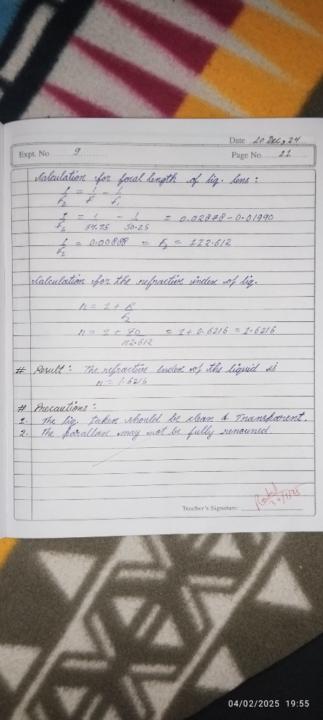 Date 20 Dec, 24
Expt. No 9
Page No. 21
Calculation for focal length of liq. lens :
1/F2 = 1/F - 1/F1
1/F2 = 1/34.75 - 1/50.25 = 0.02878 - 0.01990
1/F2 = 0.00888 = F2 = 112.612
Calculation for the refractive index of liq.
n = 1 + R/F2
n = 1 + 70/112.612 = 1 + 0.6216 = 1.6216
# Result : The refractive index of the liquid is
n = 1.6216
# Precautions :
1. The liq. taken should be clean & Transparent.
2. The parallax may not be fully removed.
Teacher's Signature
04/02/2025 19:55